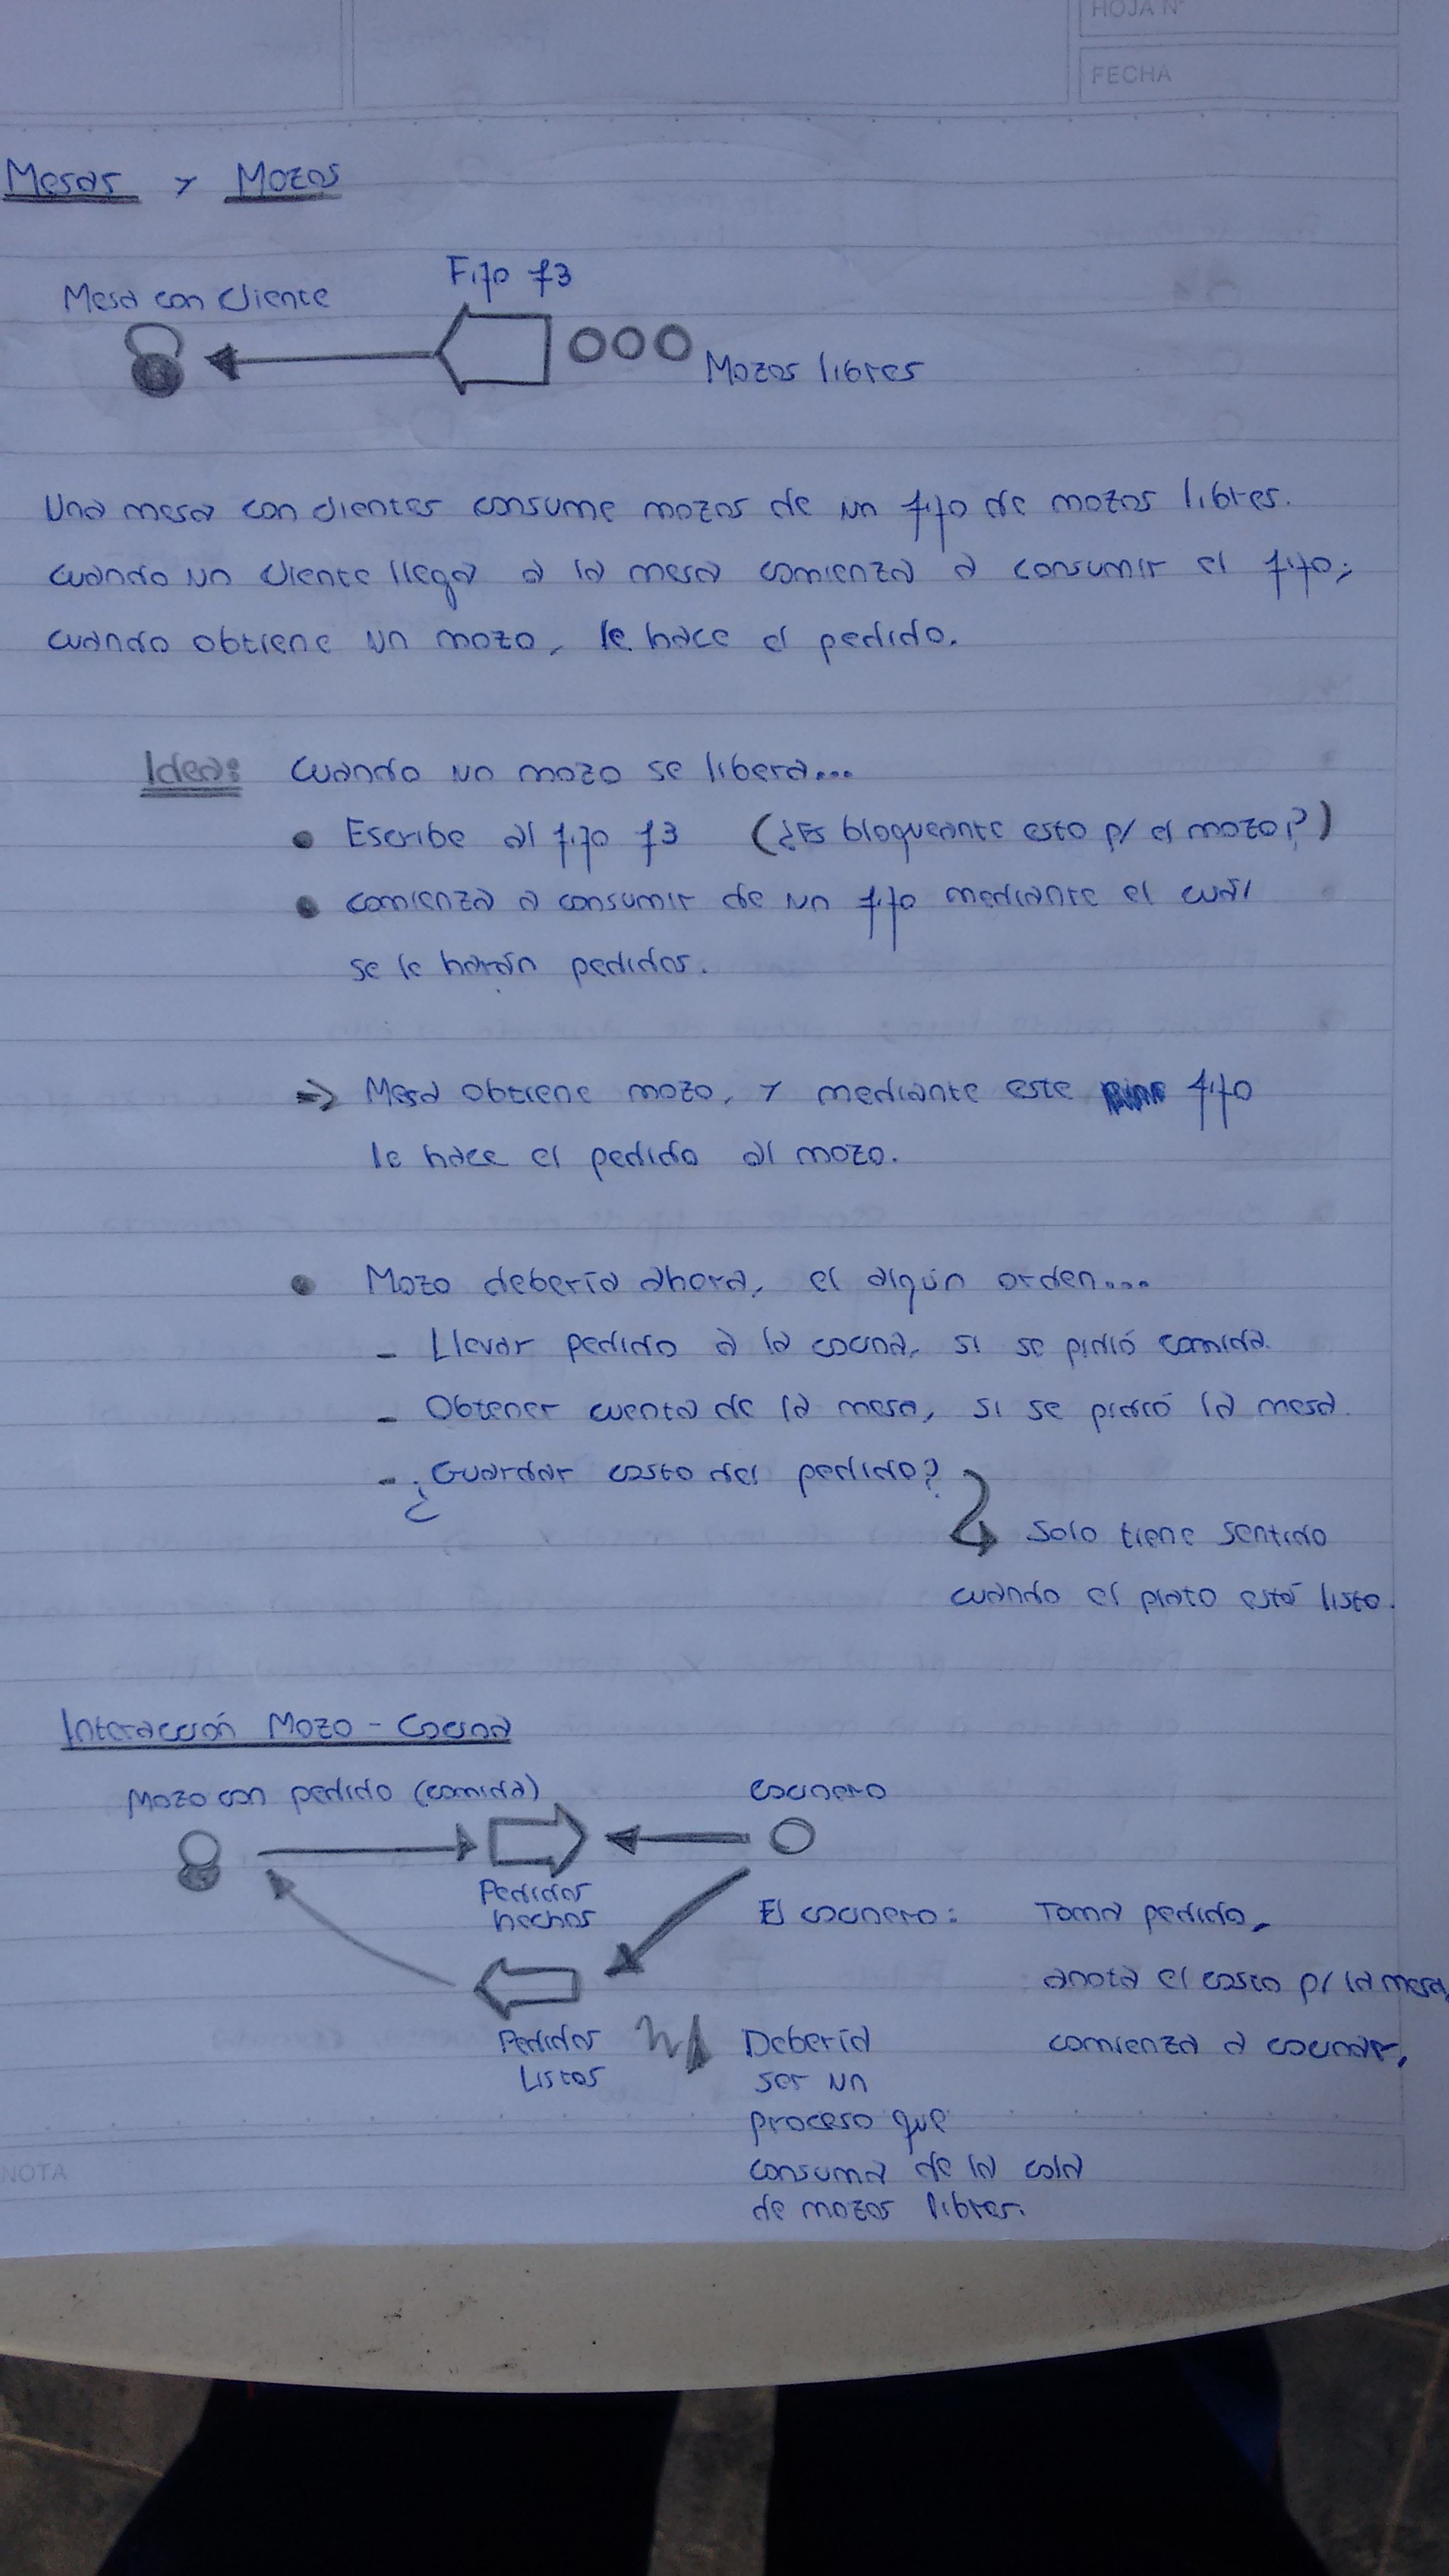 HOJA N°
FECHA
Mesas y Mozos
Fifo f3
Mesa con cliente
Mozos libres
Una mesa con clientes consume mozos de un fifo de mozos libres.
cuando un cliente llega a la mesa comienza a consumir el fifo;
cuando obtiene un mozo, le hace el pedido.
Idea: cuando un mozo se libera...
• Escribe al fifo f3 (¿Es bloqueante esto p/ el mozo?)
• comienza a consumir de un fifo mediante el cuál
se le harán pedidos.
=> Mesa obtiene mozo, y mediante este fifo
le hace el pedido al mozo.
• Mozo debería ahora, el algún orden...
- Llevar pedido a la cocina, si se pidió comida.
- Obtener cuenta de la mesa, si se pidió la mesa.
- ¿Guardar costo del pedido?
Solo tiene sentido
cuando el plato está listo.
Interacción Mozo - Cocina
Mozo con pedido (comida)
cocinero
Pedidos
hechos
El cocinero: Toma pedido,
anota el costo p/ la mesa,
comienza a cocinar.
Pedidos
Listos
Debería
ser un
proceso que
consuma de la cola
de mozos libres.
NOTA